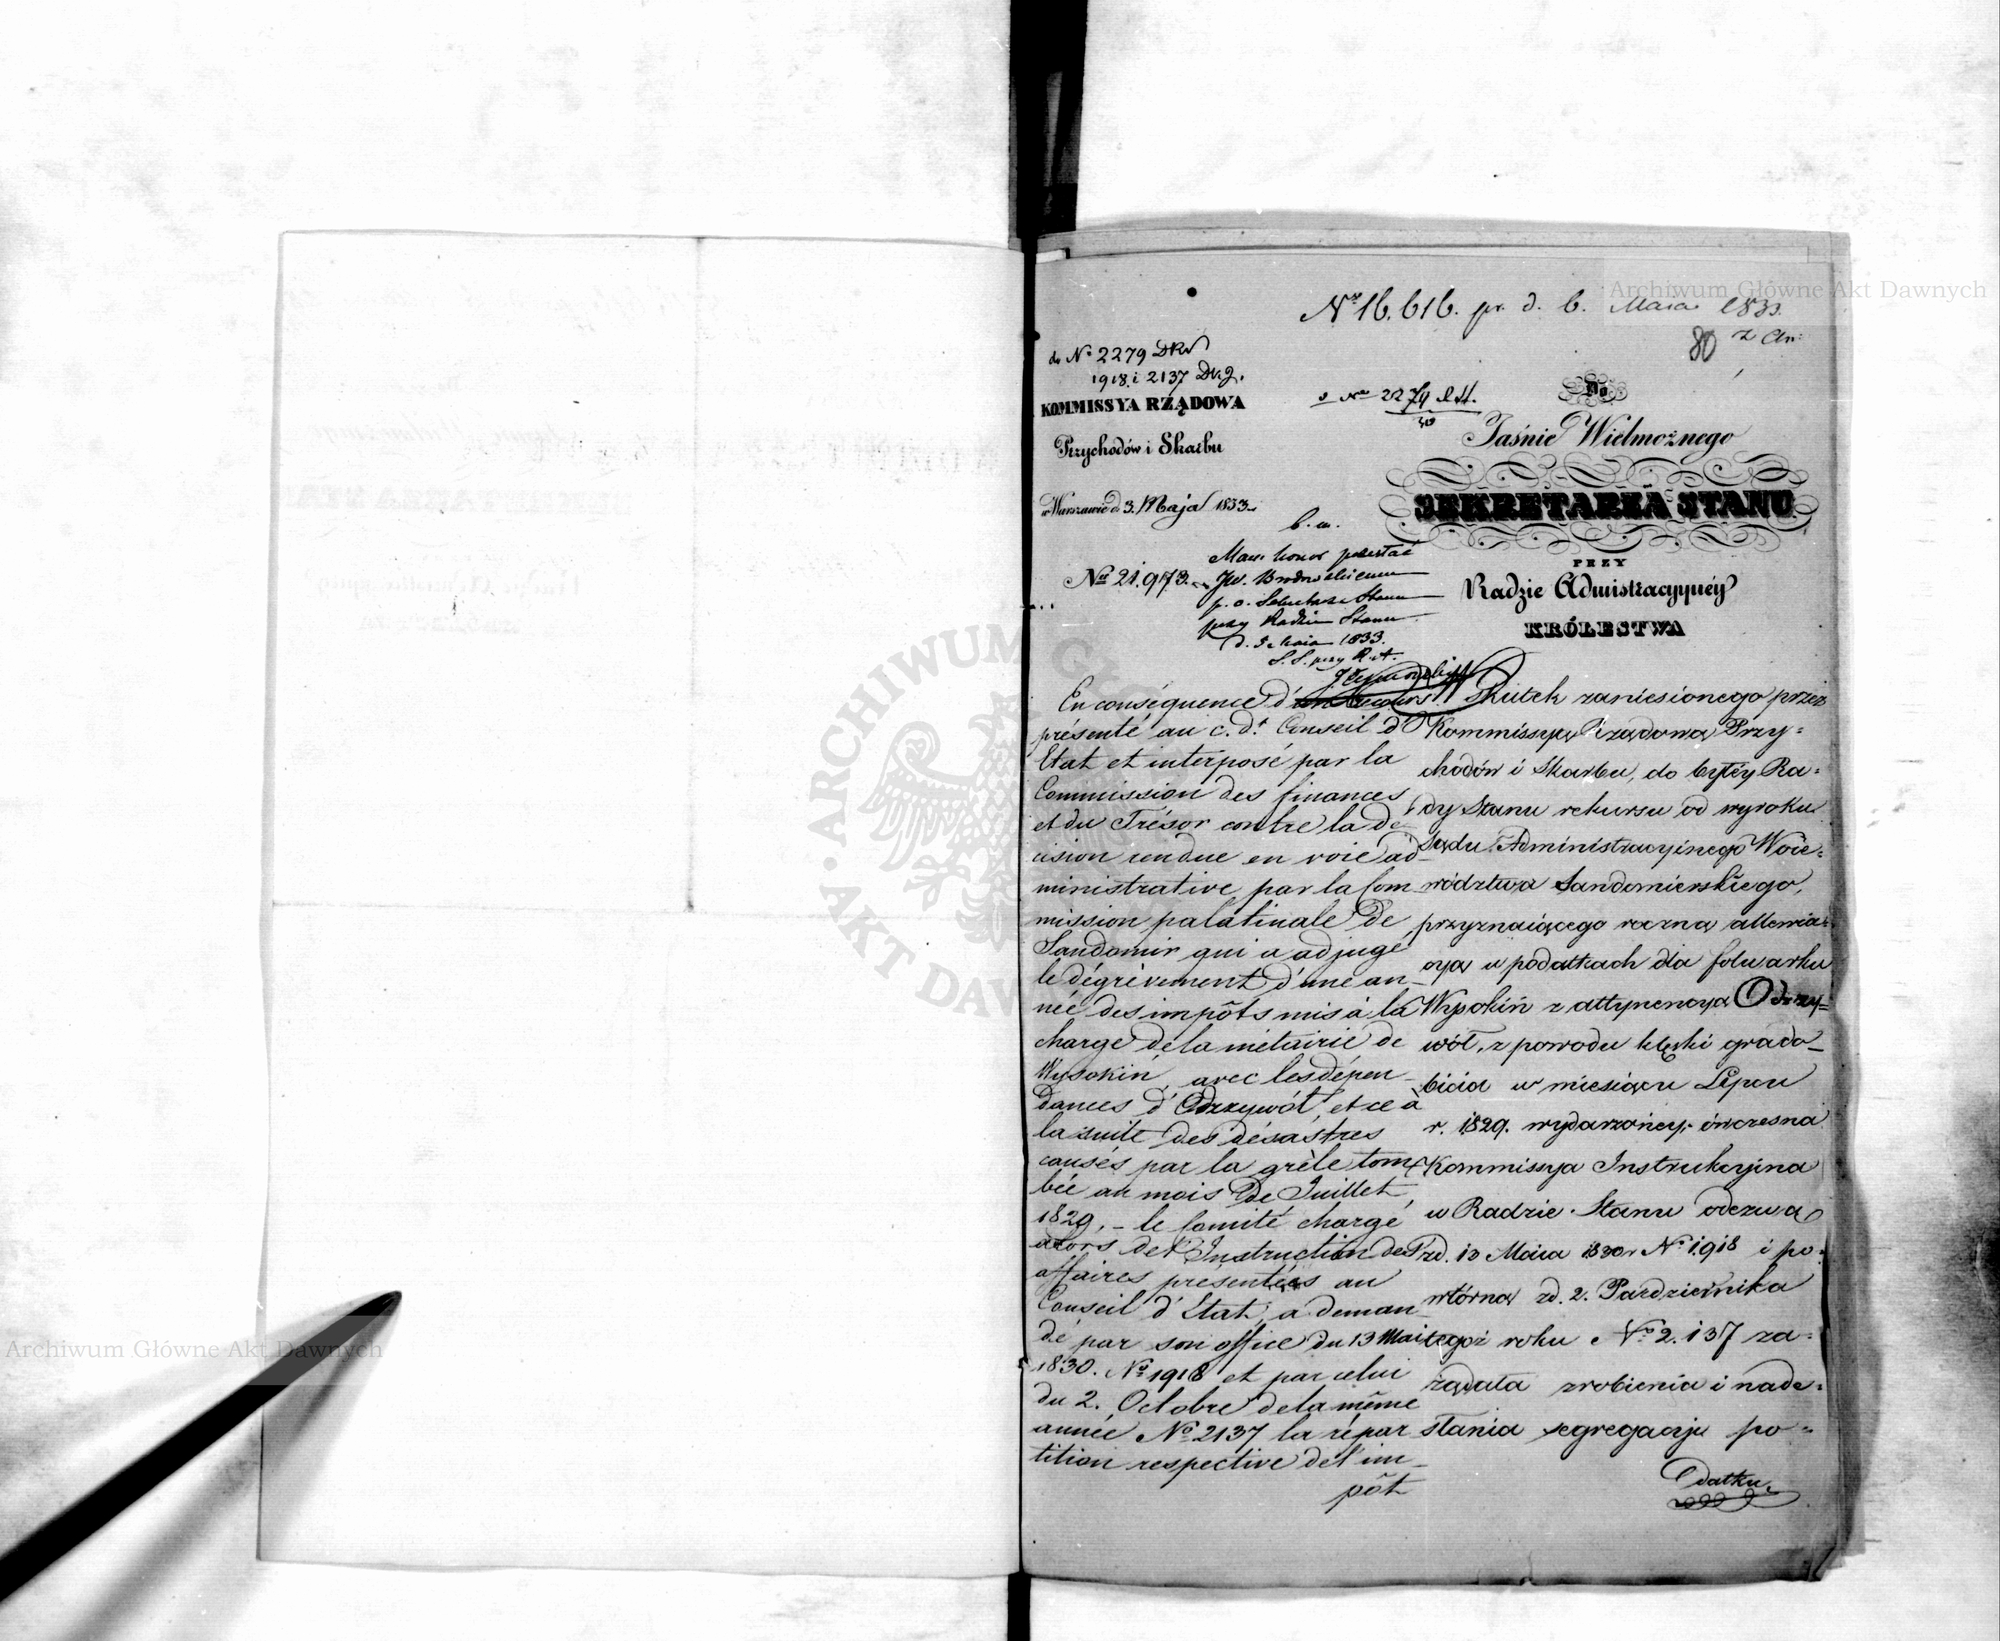 Nro 16.616. pr. d. 6. Maia 1833.
80
do No 2279 DRS
1918. i 2137 Dr. g.
KOMMISSYA RZĄDOWA
Przychodów i Skarbu
w Warszawie d. 3. Maja 1833.
No 21.973.
Do
Jaśnie Wielmożnego
SEKRETARZA STANU
PRZY
Radzie Admistracyyney
KRÓLESTWA
Mam honor przesłać
JW. Brodowskiemu
p. o. Sekretarza Stanu
przy Radzie Stanu
d. 5 Maia 1833.
S. S. przy R. A.
En conséquence d'un recours
présenté au c. dt. Conseil d'
Etat et interposé par la
Commission des finances
et du Trésor contre la dé
cision rendue en voie ad-
ministrative par la Com
mission palatinale de
Sandomir qui a adjugé
le dégrèvement d'une an-
née des impôts mis à la
charge de la métairie de
Wysokin, avec les dépen-
dances d'Odrzywół, et ce à
la suite des désastres
causés par la grèle tom-
bée au mois de Juillet
1829, - le Comité chargé
alors de l'Instruction des
affaires presentées au
Conseil d'Etat, a deman
dé par son office du 13 Mai
1830. No 1918 et par celui
du 2. Octobre de la même
année No 2137 la répar
tition respective de l'im-
pôt
W Skutek zaniesionego przez
Kommissyą Rządową Przy-
chodów i Skarbu, do byłéy Ra-
dy Stanu rekursu od wyroku
Sądu Administracyinego Woie-
wództwa Sandomierskiego,
przyznaiącego roczną allewia-
cyą w podatkach dla folwarku
Wysokiń z attynencyą Odrzy-
wół, z powodu klęski grado-
bicia w miesiącu Lipcu
r. 1829. wydarzonéy, ówczesna
Kommissya Instrukcyina
w Radzie Stanu odezwą
zd. 13 Maia 1830r No 1918 i po-
wtórną zd. 2. Pazdziernika
tegoż roku No 2.137 za-
żądała zrobienia i nade-
słania segregacyi po-
datku
Archiwum Główne Akt Dawnych
ARCHIWUM GŁÓWNE AKT DAWNYCH
Archiwum Główne Akt Dawnych